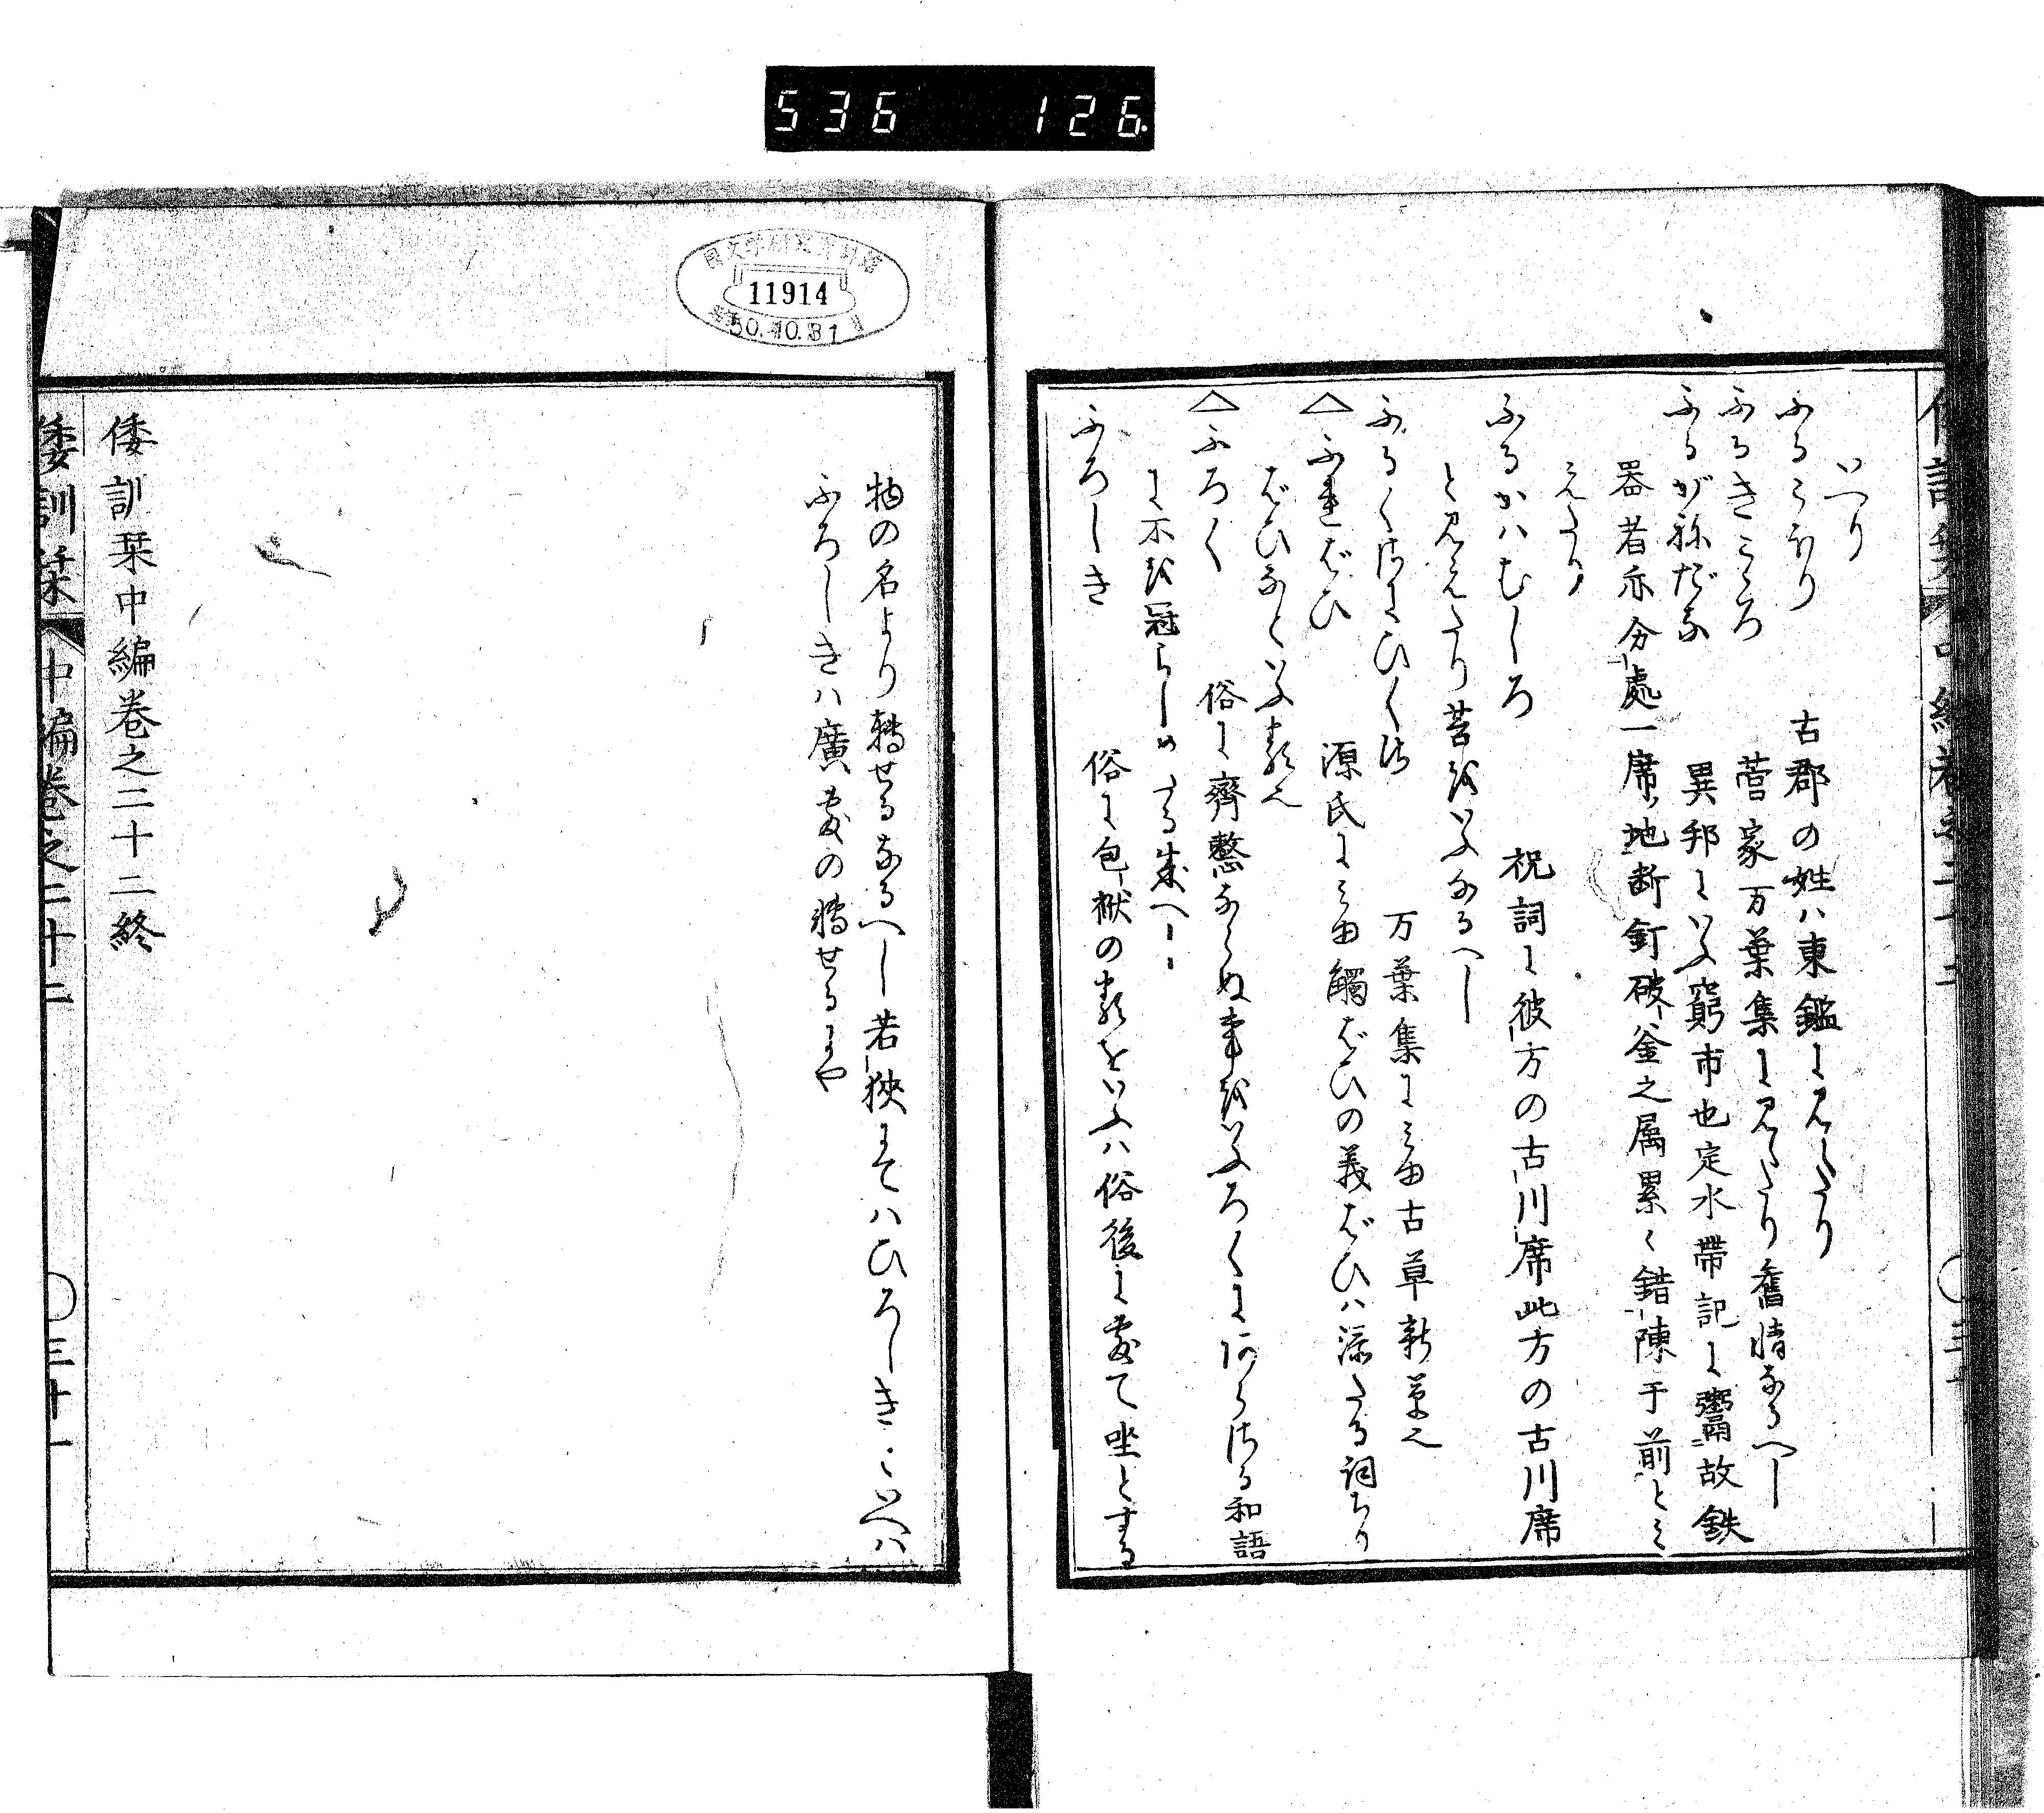 536 126
いへり
ふるこほり 古郡の姓ハ東鑑に見えたり
ふるきこゝろ 菅家万葉集に見えたり舊情なるへし
ふるがねだな 異邦にいふ窮市也定水帶記に鬻故鉄
器者亦分處一席地断釘破釜之属累々錯陳于前とミ
えたり
ふるかハむしろ 祝詞に彼方の古川席此方の古川席
と見えたり苫をいふなるへし
ふるくさにひくさ 万葉集にミゆ古草新草也
△ふればひ 源氏にミゆ觸ばひの義ばひハ添たる詞なり
ばひなといふ類也
△ふろく 俗に齊整ならぬ事をいふろくにあらさる和語
に不を冠らしめたる成へし
ふろしき 俗に包袱の類をいふハ俗後に敷て坐とする
物の名より轉せるなるへし若狹にてハひろしきといへハ
ふろしきハ廣敷の轉せるにや
倭訓栞中編巻之二十二終
倭訓栞 中編巻之二十二 〇三十一
國文学研究資料館
11914
50.10.31